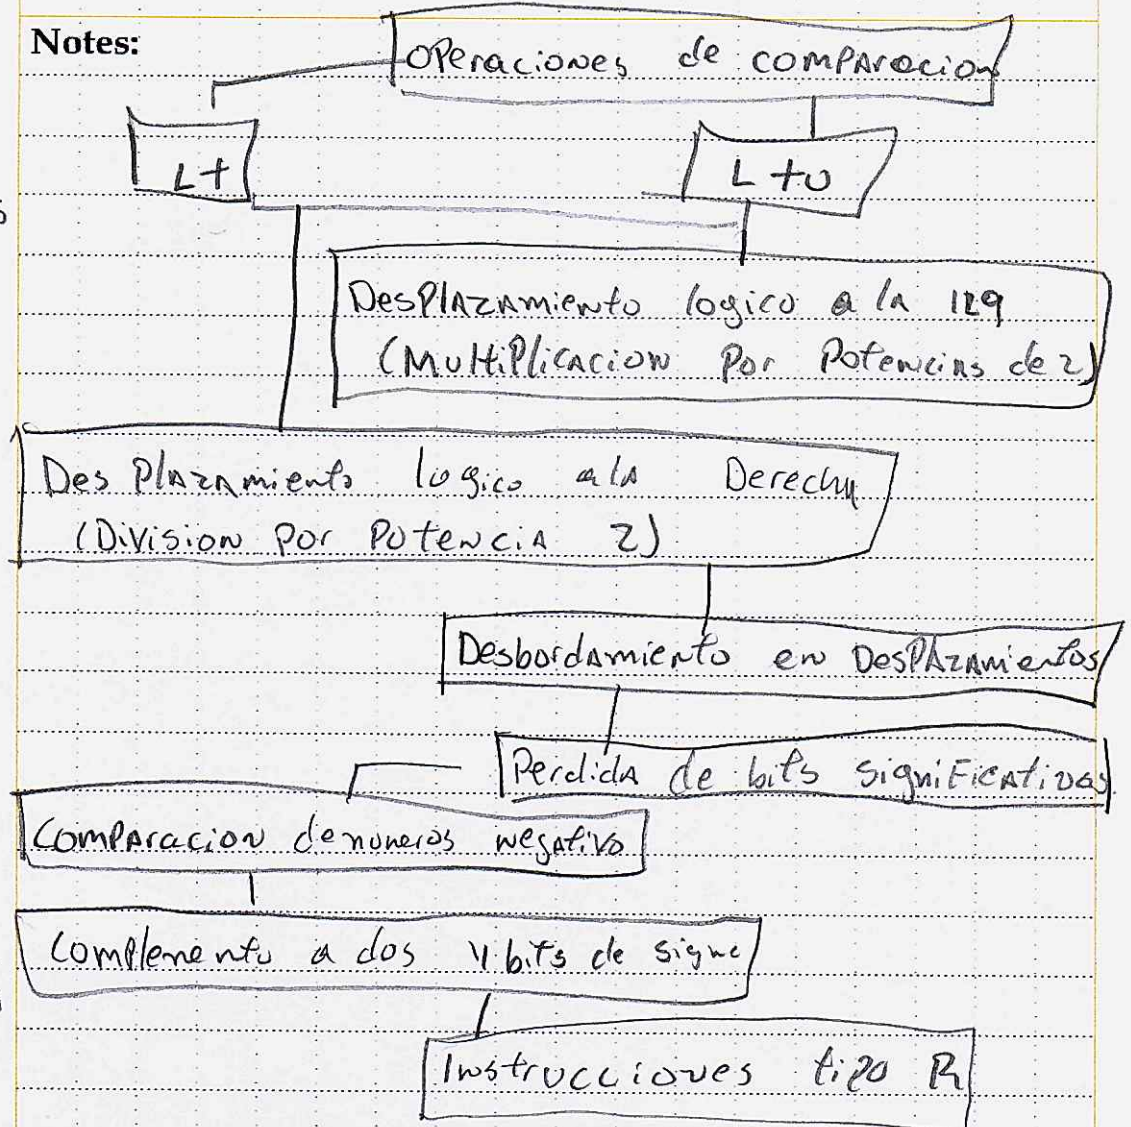 Notes:
Operaciones de comparacion
Lt
Ltu
Desplazamiento logico a la izq
(Multiplicacion Por Potencias de 2)
Desplazamiento logico a la Derecha
(Division por Potencia 2)
Desbordamiento en Desplazamientos
Perdida de bits significativos
Comparacion de numeros negativo
Complemento a dos y bits de signo
Instrucciones tipo R